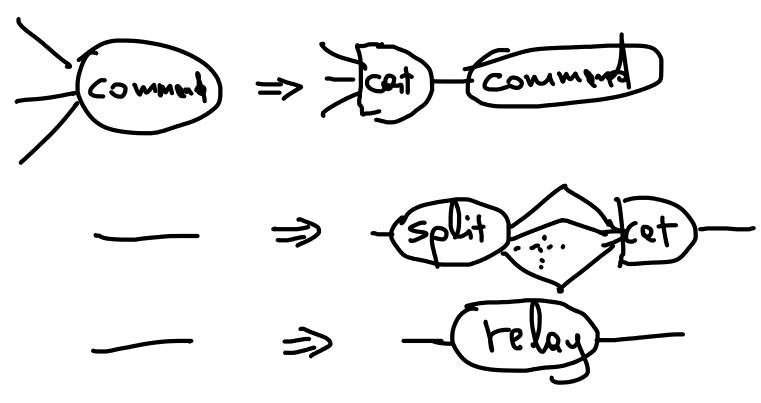 command ⇒ cat command
⇒ split cat
⇒ relay